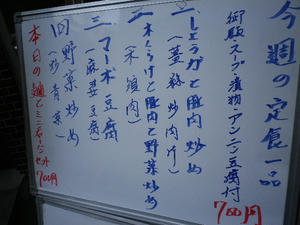 今週の定食一品
御飯・スープ・漬物・アンニン豆腐付
700円
一 しょうがと豚肉炒め
(姜絲炒肉片)
二 木くらげと豚肉と野菜炒め
(木須肉)
三 マーボ豆腐
(麻婆豆腐)
四 野菜炒め
(炒青菜)
本日の麺とミニチャーハンセット
700円